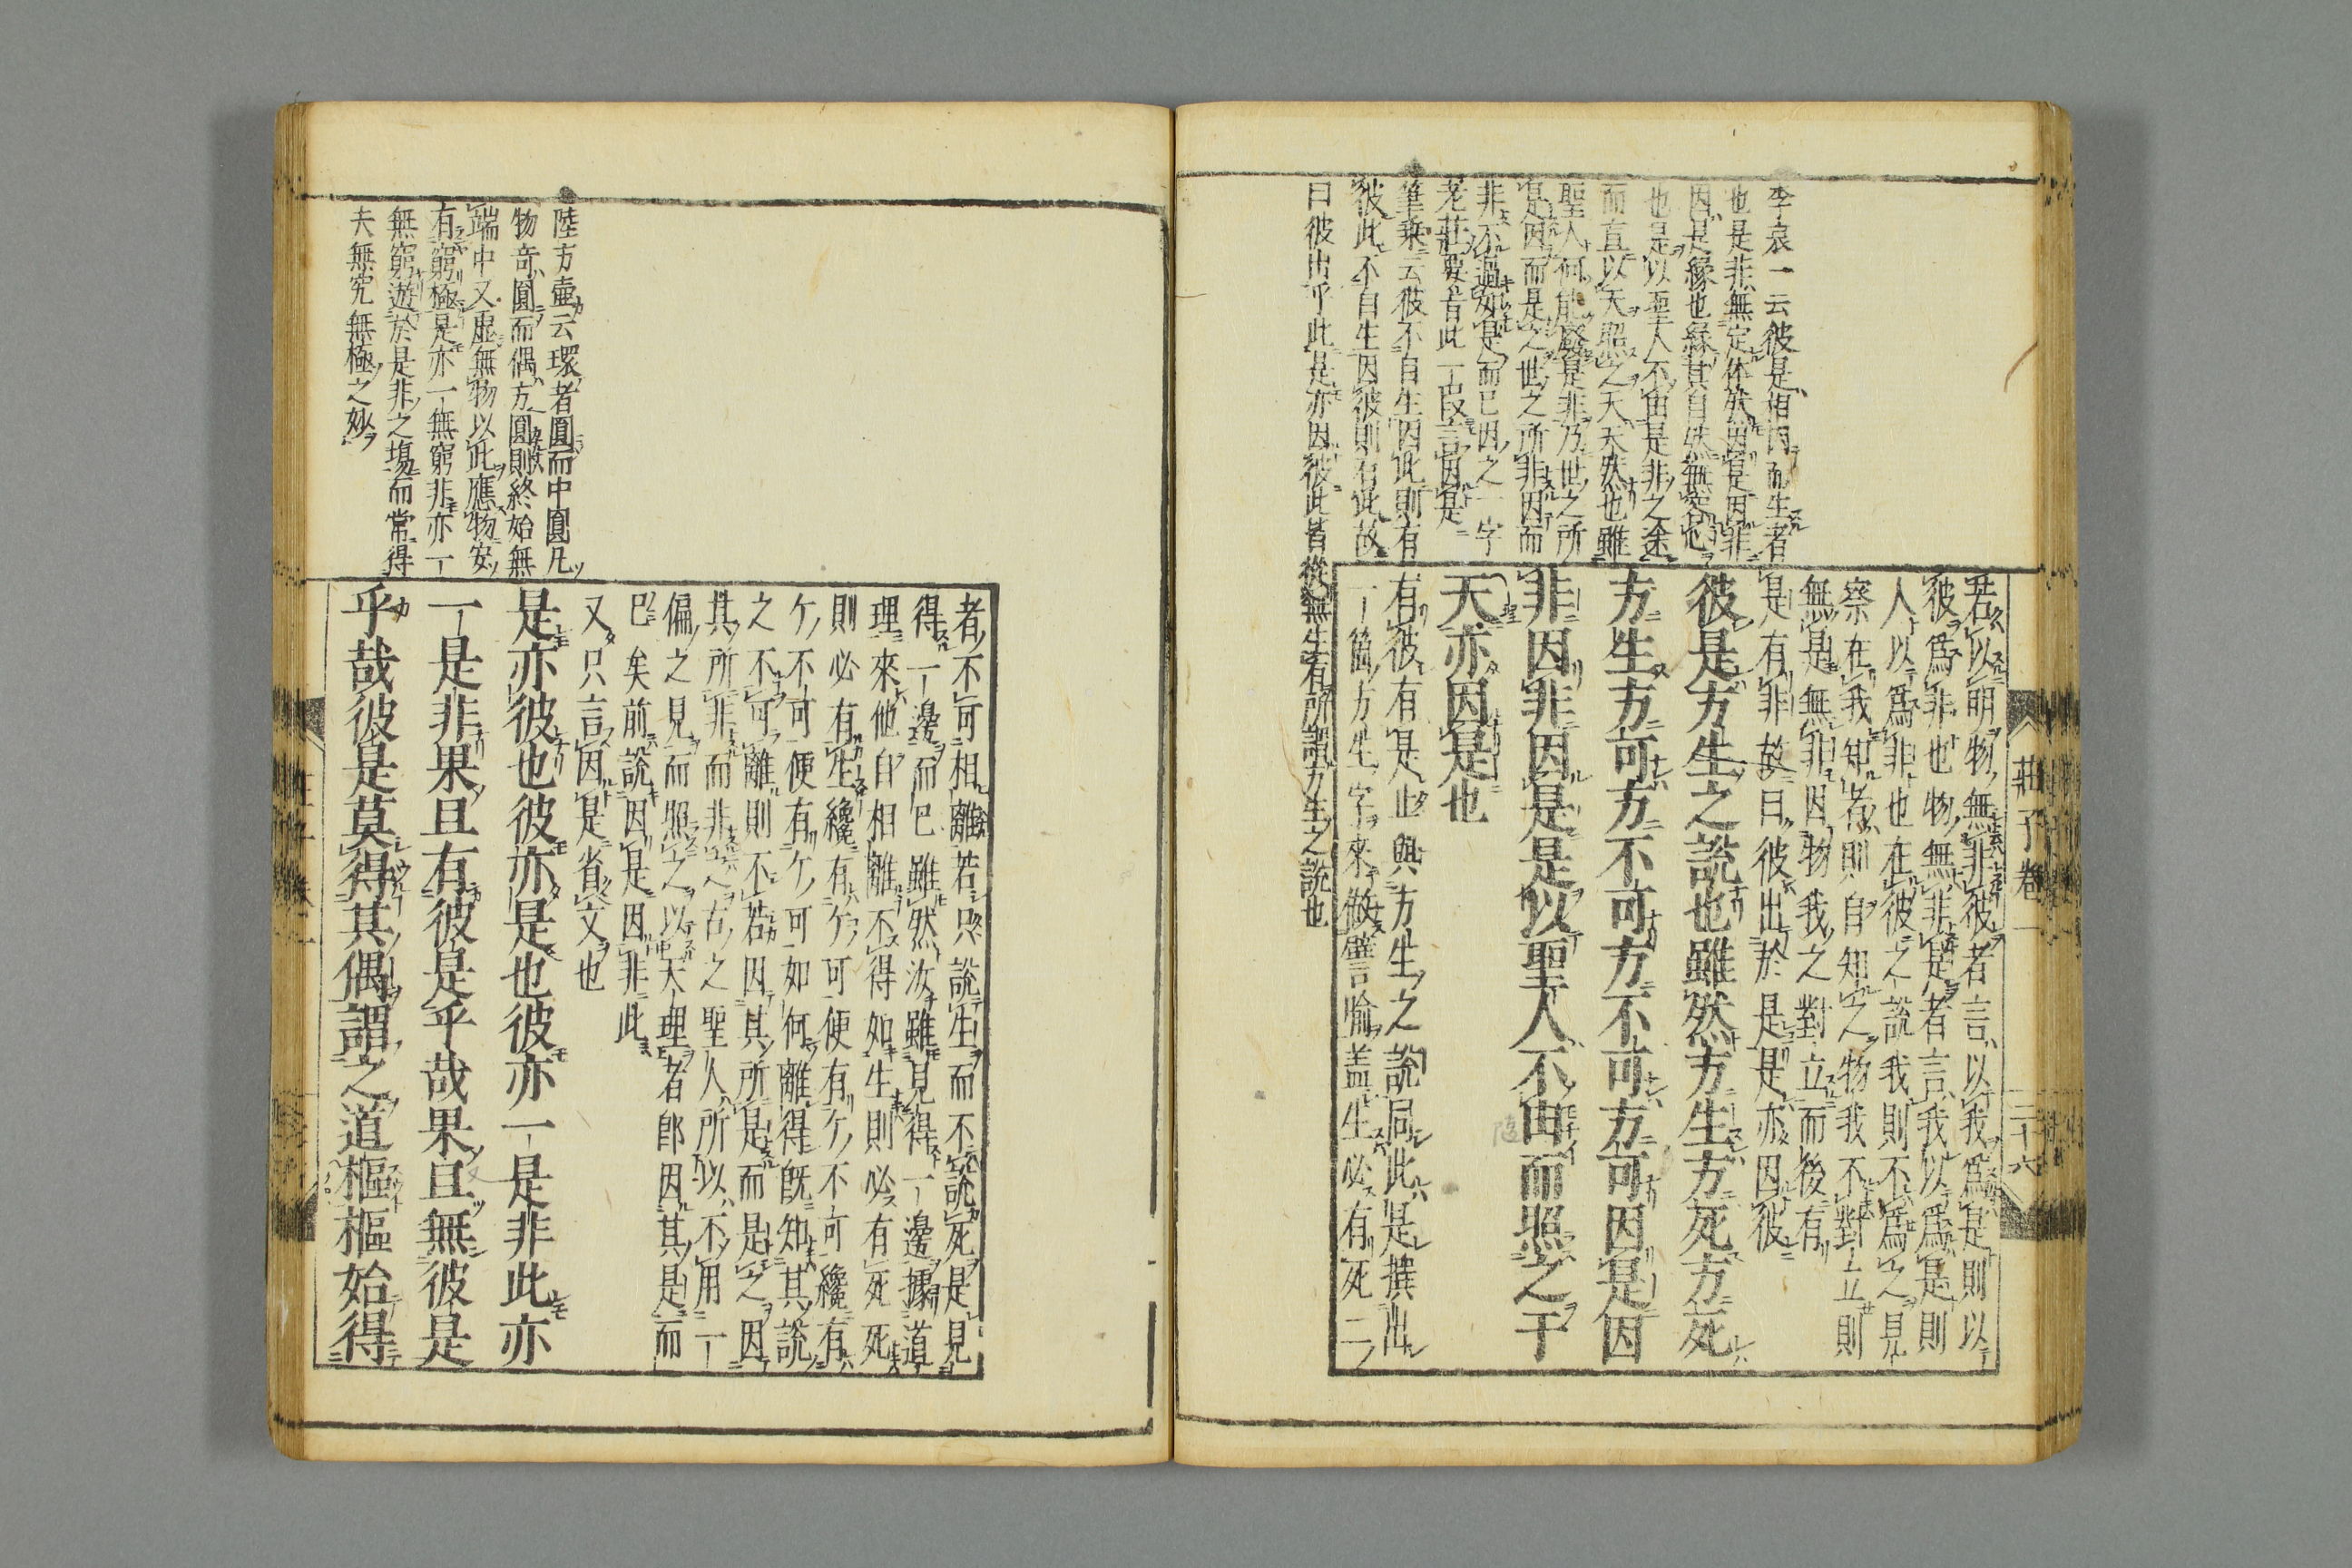 李衷一云彼是相因而生者
也是非無定体然因是因非
因是緣也緣其自然無安心
也是以聖人不由是非之途
而直以天照之天天然也雖
聖人何能廢是非乃世之所
是因而是之世之所非因而
非不過如是而已因之一字
老莊要旨此一段言因是
筆乗云彼不自生因此則有
彼此不自生因彼則有此故
曰彼出乎此是亦因彼此皆從無生有所謂方生之說也
若以明物無非彼者言以我為是則以
彼為非也物無非是者言我以為是則
人以為非也在彼之說我則不為之見
察在我知者則自知之物我不對立則
無是無非因物我之對立而後有
是有非故曰彼出於是是亦因彼
彼是方生之說也雖然方生方死方死
方生方可方不可方不可方可因是因
非因非因是是以聖人不由而照之于
天亦因是也
有彼有是此與方生之說同此是撰出
一箇方生字來做譬喻盖生必有死二
莊子卷一
二十六
陸方壷云環者圓而中圓凡
物奇圓而偶方圓則終始無
端中又虛無物以此應物安
有窮極是亦一無窮非亦一
無窮遊於是非之場而常得
夫無究無極之妙
者不可相離若只說生而不說死是見
得一邊而已雖然汝雖見得一邊據道
理來他自相離不得如生則必有死死
則必有生纔有ケ可便有ケ不可纔有
ケ不可便有ケ可如何離得旣知其說
之不可離則不若因其所是而是之因
其所非而非之古之聖人所以不用一
偏之見而照之以天理者郎因其是而
已矣前說因是因非此
又只言因是省文也
是亦彼也彼亦是也彼亦一是非此亦
一是非果且有彼是乎哉果且無彼是
乎哉彼是莫得其偶謂之道樞樞始得